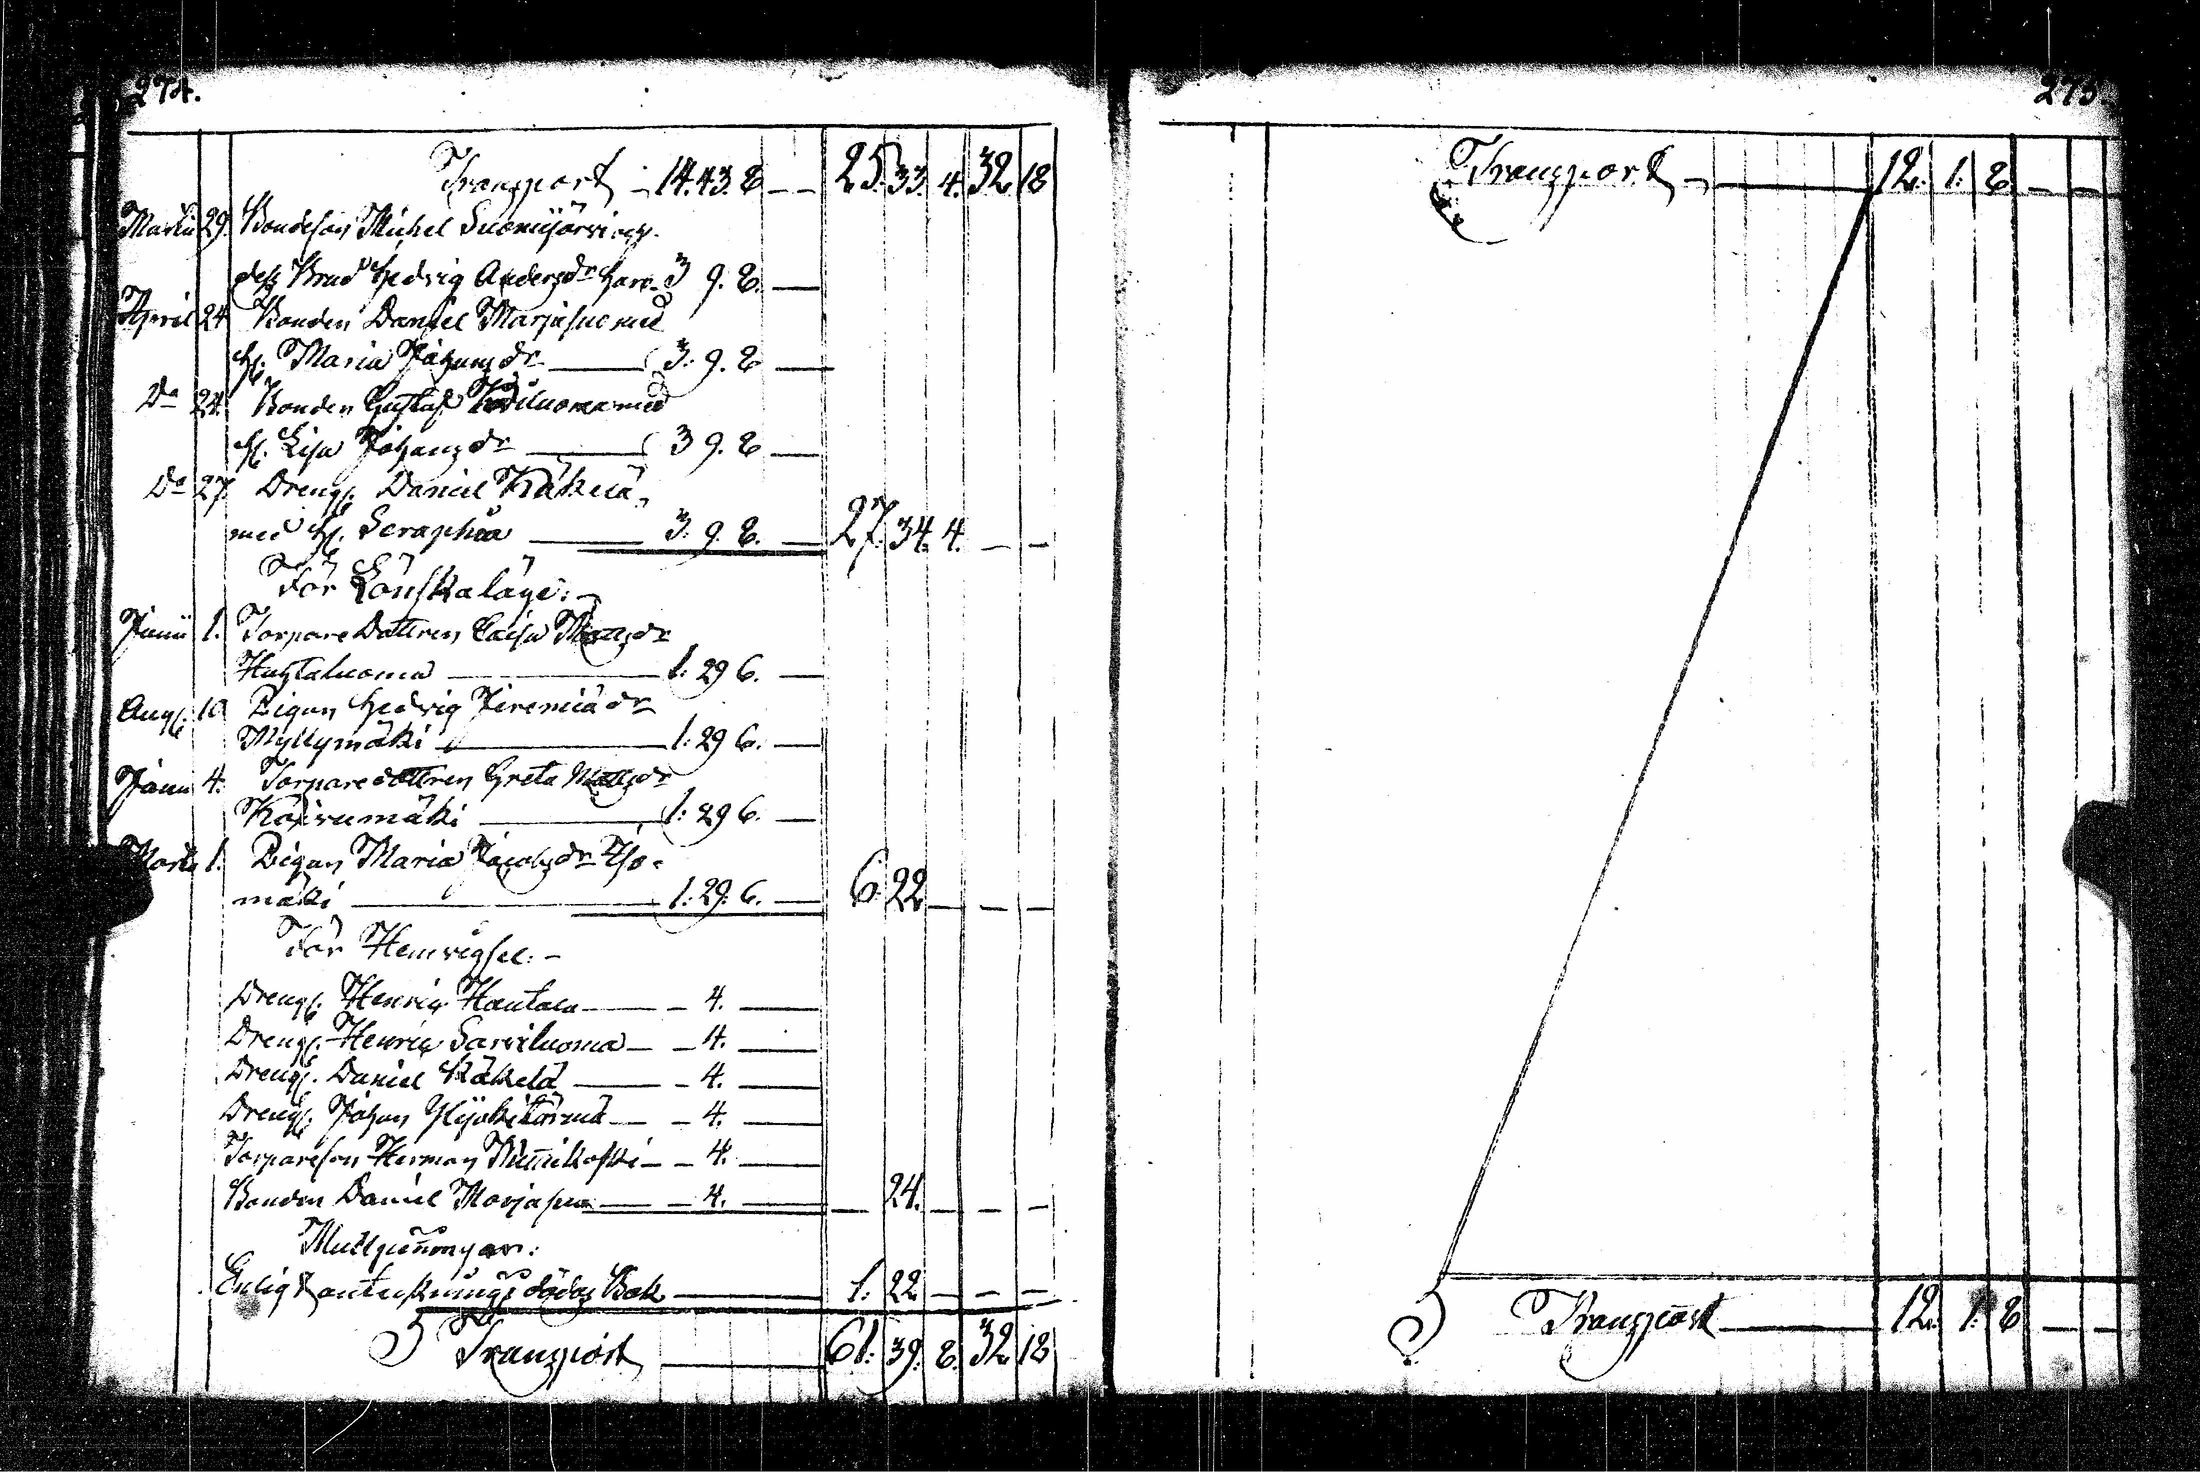 274.
Transport 14. 43. 8 — 25. 33. 4. 32. 18
Martii 29. Bondeson Michel Suomijärvi och
dess Brud Hedvig Andersdr Harr. 3 9. 8. —
April 24 Bonden Daniel Marjasuo med
H. Maria Johansdr — 3. 9. 8 —
Do 24. Bonden Gustaf luoma med
H. Lisa Johansdr — 3 9. 8 —
Do 27. Drengs. Daniel Käkelä,
med H. Seraphia — 3. 9. 8. — 27. 34. 4. — —
För Lönskaläge: —
Junii 1. Torpare Dottren Caisa Mattsdr
Huhtaluoma — 1: 29 6. —
Augs. 10 Pigan Hedvig Jeremiädr
Myllymäki — 1: 29 6. —
4. Torparedottren Greta Mattsdr
Koivumäki — 1: 29 6. —
Martii 1. Pigan Maria Jacobsdr Iso-
mäki — 1. 29. 6. — 6. 22 — — —
För Hemvigsel: —
Drengs. Henric Hautala — — 4. —
Drengs. Henric Sarviluoma — — 4. —
Drengs. Daniel Käkelä — — 4. —
Drengs. Johan Ylijoki — — 4. —
Torpareson Herman Niemikoski — — 4. —
Bonden Daniel Marjasuo — — 4. — — 24. — — —
Mullpenningar:
Enligt antecknings dödas Bok — 1. 22 — — —
Transport — 61. 39. 8. 32. 18
275
Transport — 12. 1. 8 — —
Transport — 12. 1. 8 — —